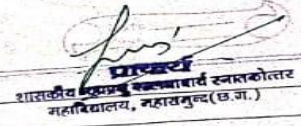 प्राचार्य
शासकीय महाप्रभु वल्लभाचार्य स्नातकोत्तर
महाविद्यालय, महासमुन्द (छ.ग.)